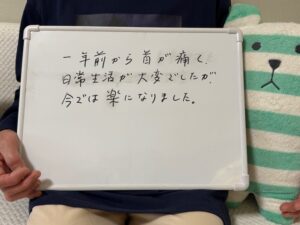 一年前から首が痛く、
日常生活が大変でしたが、
今では楽になりました。